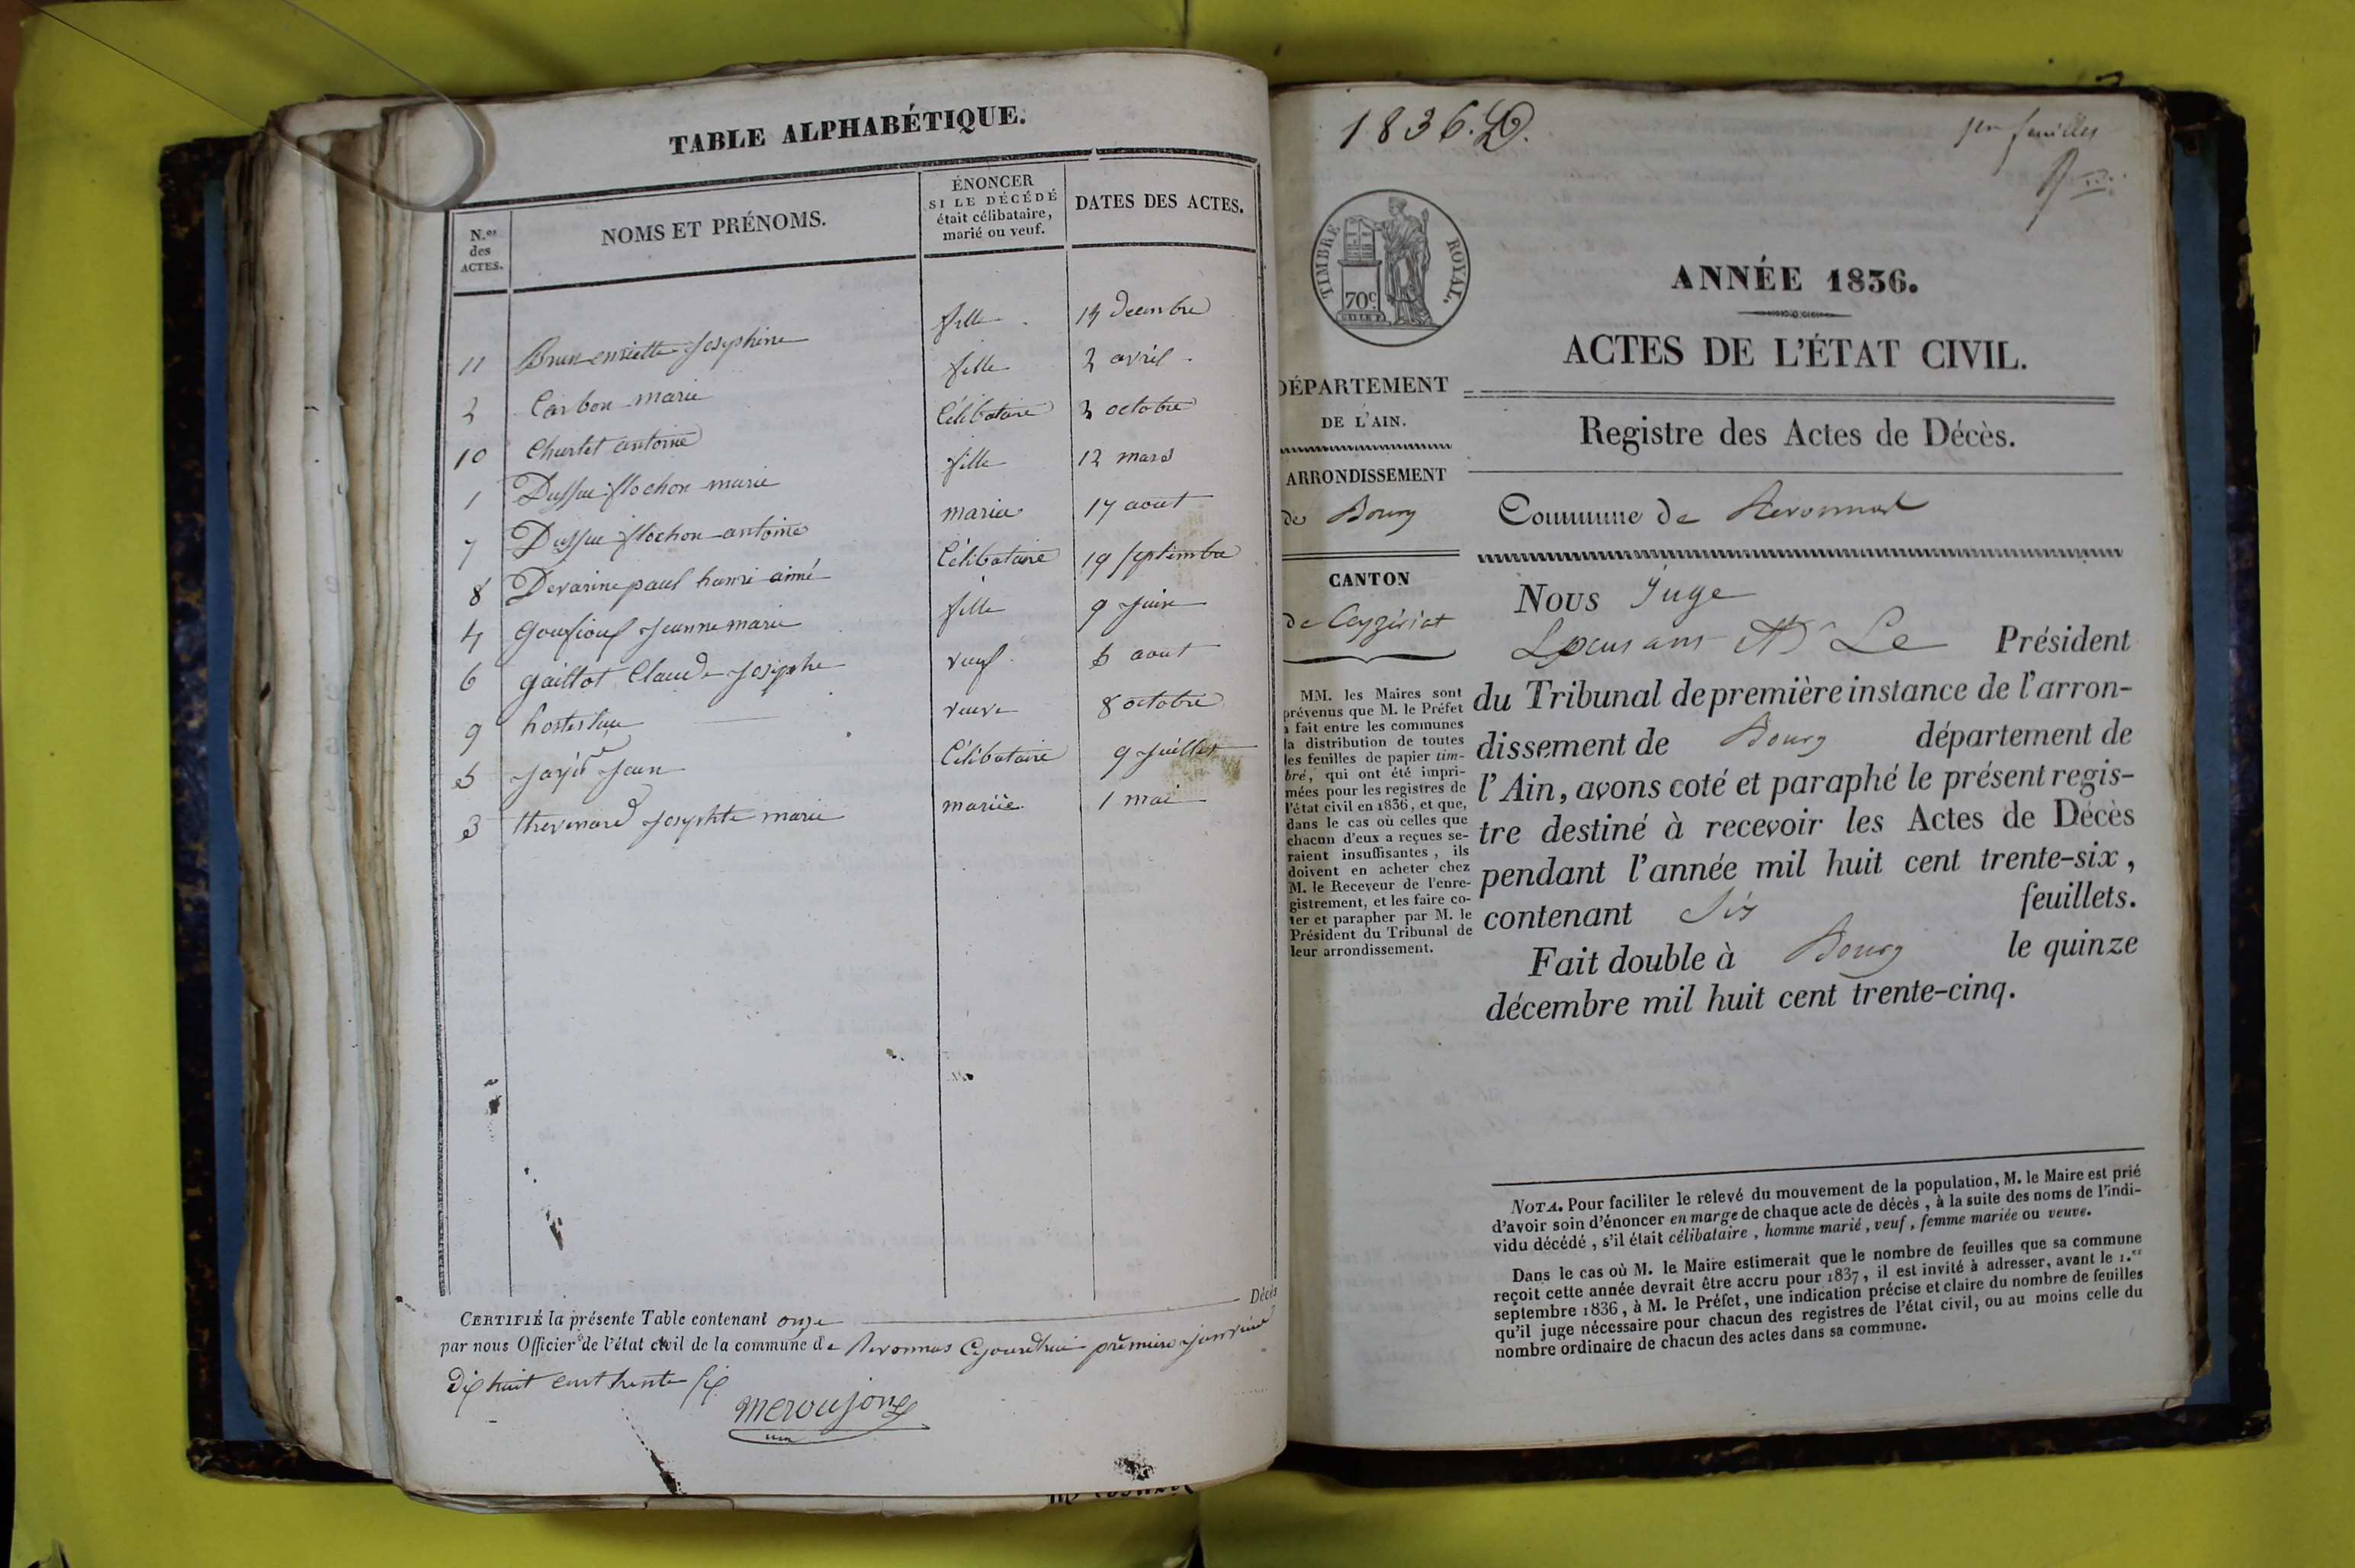 TABLE ALPHABÉTIQUE.
N.os des ACTES.
NOMS ET PRÉNOMS.
ÉNONCER SI LE DÉCÉDÉ était célibataire, marié ou veuf.
DATES DES ACTES.
11 Brun Josephine fille 14 decembre
2 Carbon marie fille 2 avril
10 Chartet antoine Célibataire 2 octobre
1 Dussue flochon marie fille 12 mars
7 Dussue flochon antoine marie 17 aout
8 Devarine paul henri aimé Célibataire 19 septembre
4 Jeanne marie fille 9 Juin
6 gaillot Claude Josephe veuf 6 aout
9 veuve 8 octobre
5 Jayr Jean Célibataire 9 Juillet
3 thevenard Josephte marie mariée 1 mai
CERTIFIÉ la présente Table contenant onze Décès
par nous Officier de l'état civil de la commune de Revonnas Cejourdhui premier Janvier
Dix huit cent trente six
1836. D.
1er feuillet
TIMBRE ROYAL.
70c.
ANNÉE 1836.
ACTES DE L'ÉTAT CIVIL.
Registre des Actes de Décès.
DÉPARTEMENT
DE L'AIN.
ARRONDISSEMENT
de Bourg
CANTON
de Ceyzériat
MM. les Maires sont
prévenus que M. le Préfet
a fait entre les communes
la distribution de toutes
les feuilles de papier tim-
bré, qui ont été impri-
mées pour les registres de
l'état civil en 1836, et que,
dans le cas où celles que
chacun d'eux a reçues se-
raient insuffisantes, ils
doivent en acheter chez
M. le Receveur de l'enre-
gistrement, et les faire co-
ter et parapher par M. le
Président du Tribunal de
leur arrondissement.
Commune de Revonnas
Nous Juge
Le Président
du Tribunal de première instance de l'arron-
dissement de Bourg département de
l'Ain, avons coté et paraphé le présent regis-
tre destiné à recevoir les Actes de Décès
pendant l'année mil huit cent trente-six,
contenant Six feuillets.
Fait double à Bourg le quinze
décembre mil huit cent trente-cinq.
NOTA. Pour faciliter le relevé du mouvement de la population, M. le Maire est prié
d'avoir soin d'énoncer en marge de chaque acte de décès, à la suite des noms de l'indi-
vidu décédé, s'il était célibataire, homme marié, veuf, femme mariée ou veuve.
Dans le cas où M. le Maire estimerait que le nombre de feuilles que sa commune
reçoit cette année devrait être accru pour 1837, il est invité à adresser, avant le 1.er
septembre 1836, à M. le Préfet, une indication précise et claire du nombre de feuilles
qu'il juge nécessaire pour chacun des registres de l'état civil, ou au moins celle du
nombre ordinaire de chacun des actes dans sa commune.